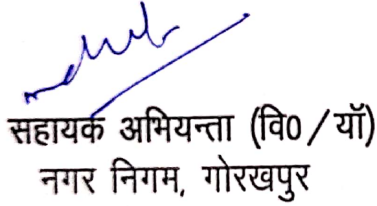 सहायक अभियन्ता (वि0/यॉ)
नगर निगम, गोरखपुर